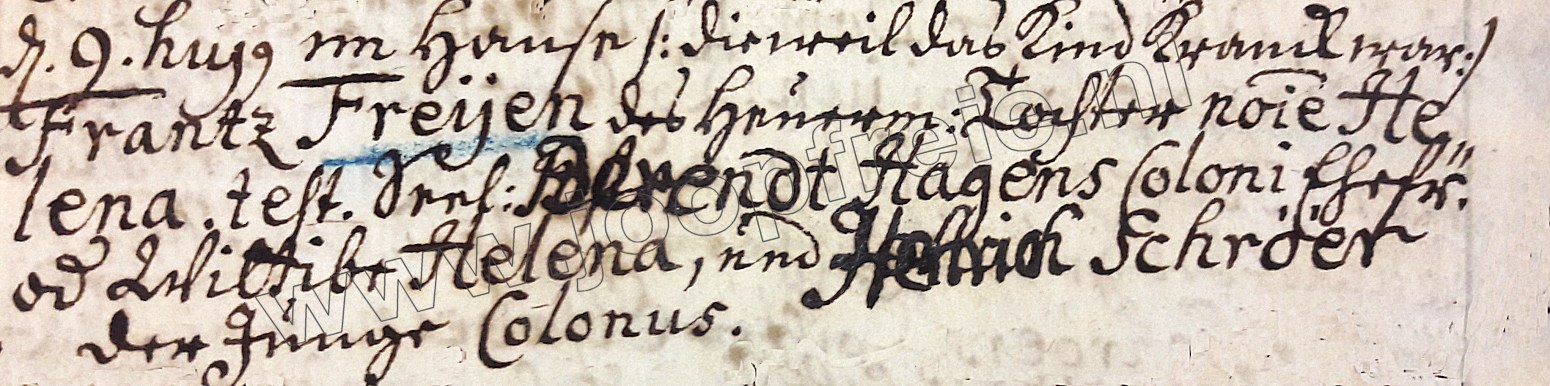 d. 9. hujg im Hause /: dieweil das Kind Kranck war:/
Frantz Freijen des Heuerm: Tochter noīe He„
lena. test. Seel: Berendt Hagens Coloni Ehefr.
od Wittibe Helena, und Henrich Schröer
der Junge Colonus.
www.joopfreio.nl